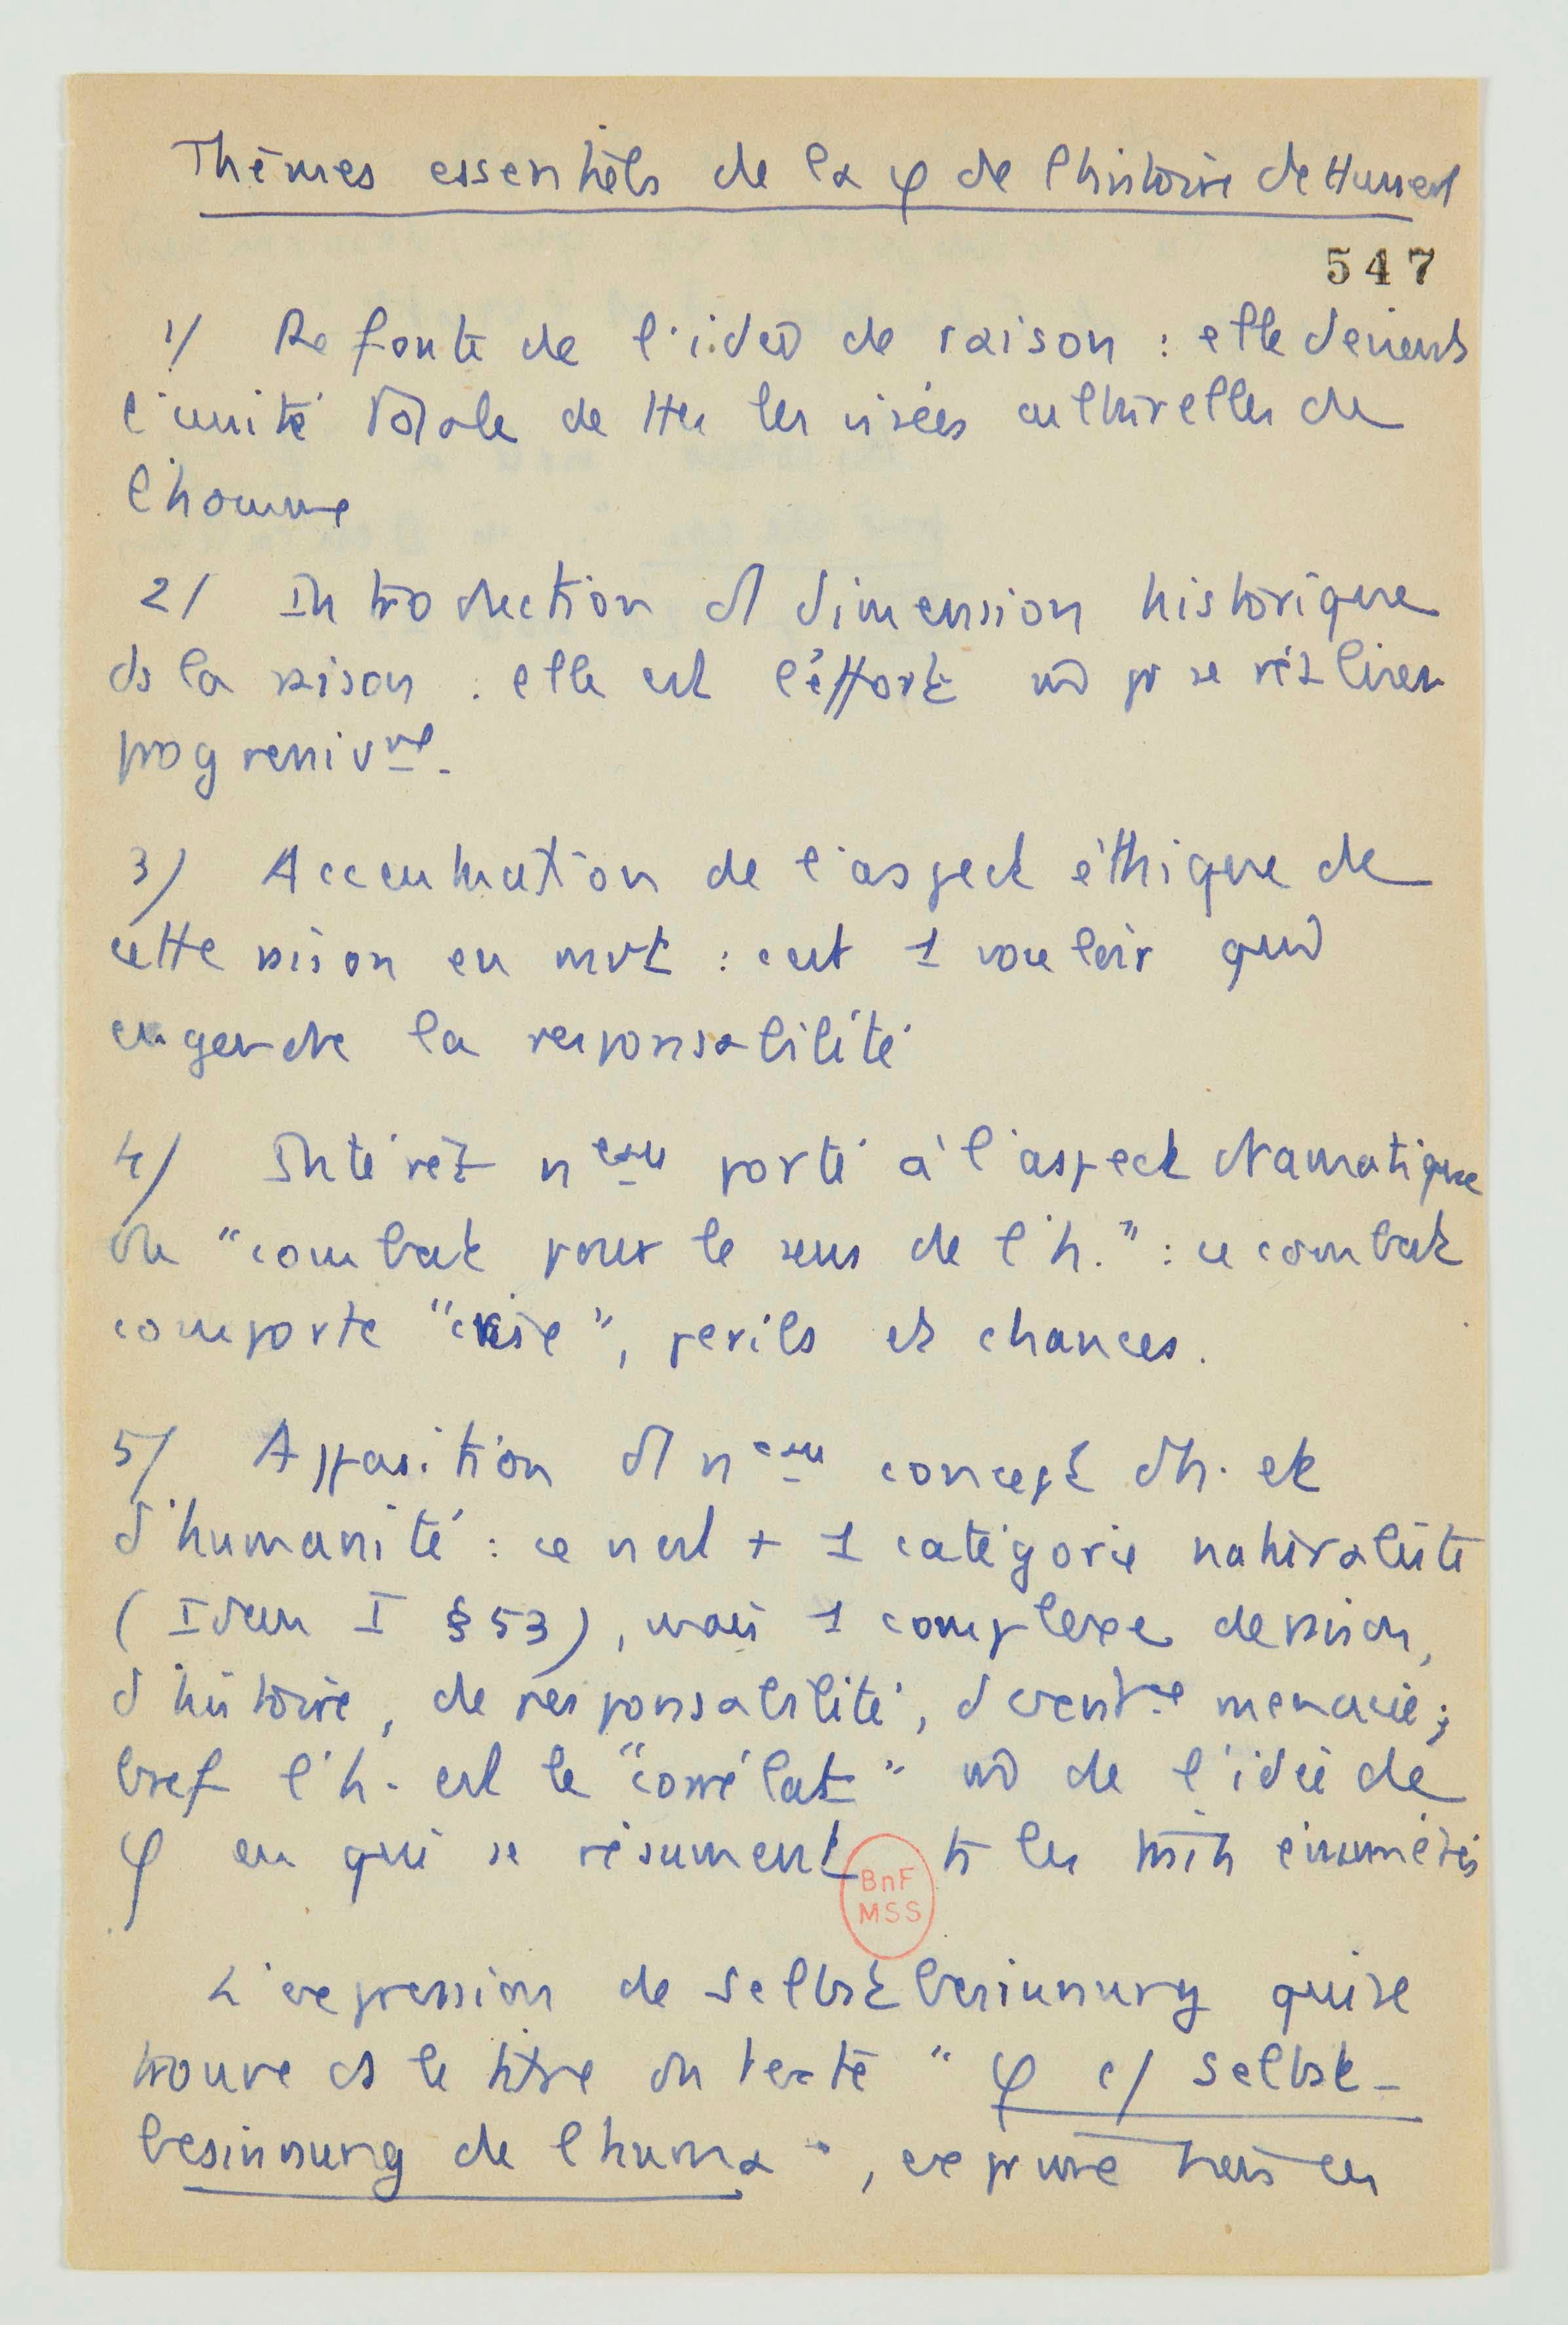 Thèmes essentiels de la φ de l'histoire de Husserl
547
1/ Refonte de l'idée de raison : elle devient
l'unité totale de ttes les visées culturelles de
l'homme
2/ Introduction d'1 dimension historique
ds la raison : elle est l'effort pr se réaliser
progressivmt.
3/ Accentuation de l'aspect éthique de
cette raison en mvt : c'est 1 vouloir qui
engendre la responsabilité
4/ Intérêt nveau porté à l'aspect dramatique
du "combat pour le sens de l'h." : ce combat
comporte "crise", périls et chances.
5/ Apparition d'1 nveau concept d'h. et
d'humanité : ce n'est + 1 catégorie naturaliste
(Ideen I §53), mais 1 complexe de raison,
d'histoire, de responsabilité, d'avent menacée ;
bref l'h. est le "corrélat" de l'idée de
φ en qui se résument ts les traits énumérés
L'expression de Selbstbesinnung qui se
trouve ds le titre du texte "φ c/ Selbst-
besinnung de l'huma", exprime très bien